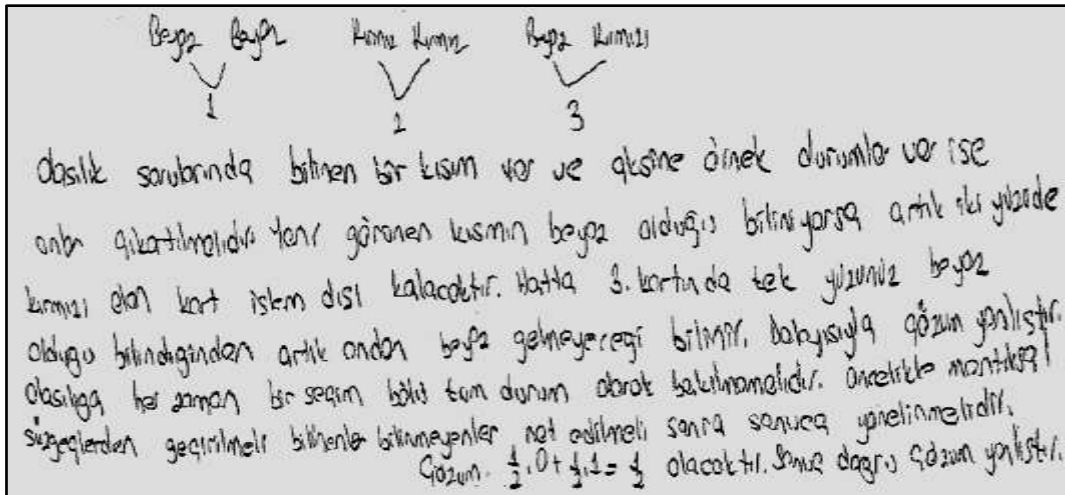 Beyaz Beyaz Kırmızı Kırmızı Beyaz Kırmızı
1 2 3
olasılık sorularında bilinen bir kısım var ve aksine örnek durumlar var ise
onlar çıkartılmalıdır. Yani görünen kısmın beyaz olduğu biliniyorsa artık iki yüzüde
kırmızı olan kart işlem dışı kalacaktır. Hatta 3. kartında tek yüzünüz beyaz
olduğu bilindiğinden artık ondan beyaz gelmeyeceği bilinir. Dolayısıyla çözüm yanlıştır.
Olasılığa her zaman bir seçim bölü tüm durum olarak bakılmamalıdır. Öncelikle mantıksal
süzgeçlerden geçirilmeli bilinenler bilinmeyenler not edilmeli sonra sonuca yönelinmelidir.
Çözüm. 1/2 . 0 + 1/2 . 1 = 1/2 olacaktır. Sonuç doğru çözüm yanlıştır.